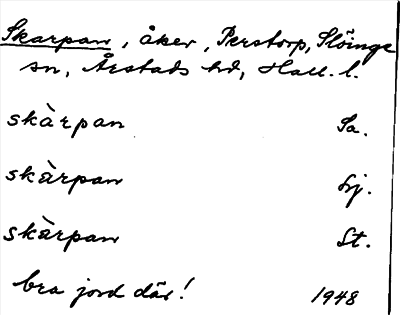 Skarpan, åker, Perstorp, Slöinge
sn, Årstads hd, Hall. l.
skàrpan Sa.
skàrpan Lj.
skàrpan St.
bra jord där! 1948